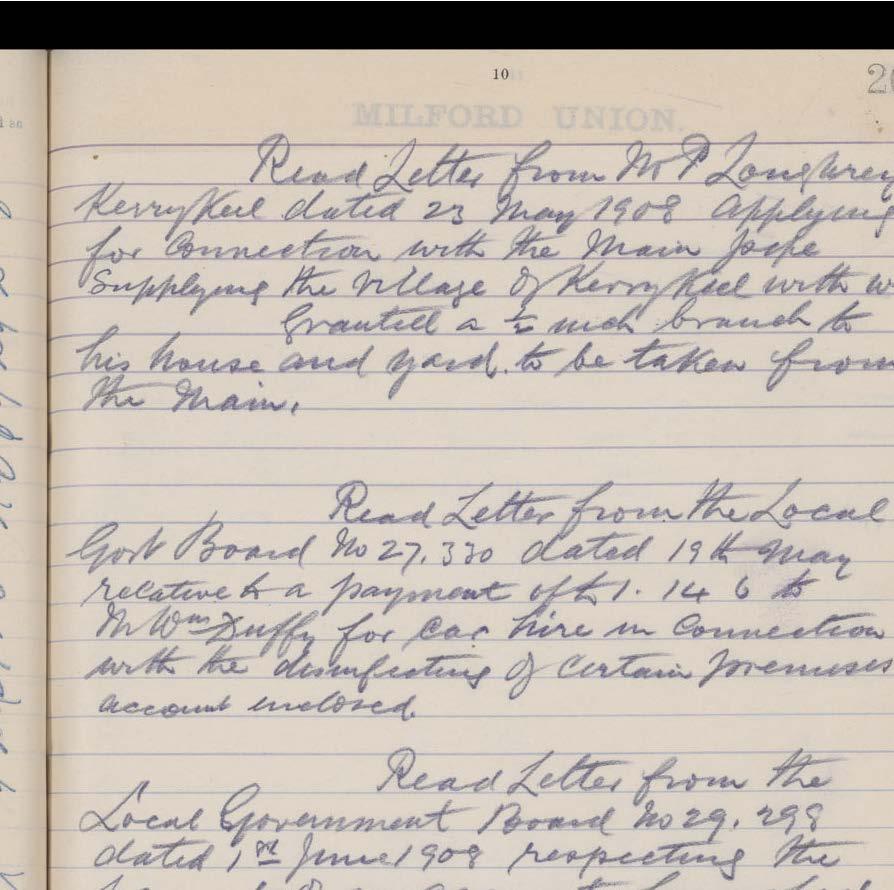 10
MILFORD UNION.
Read Letter from Mr P Loughrey
Kerrykeel dated 23 May 1908 applying
for Connection with the Main pipe
Supplying the Village of Kerrykeel with
Granted a ½ inch branch to
his house and yard. to be taken from
the Main.
Read Letter from the Local
Govt Board No 27,330 dated 19th May
relative to a payment of £1. 14 6 to
Mr Wm Duffy for car hire in Connection
with the disinfecting of Certain premises
account enclosed.
Read Letter from the
Local Government Board No 29,298
dated 1st June 1908 respecting the